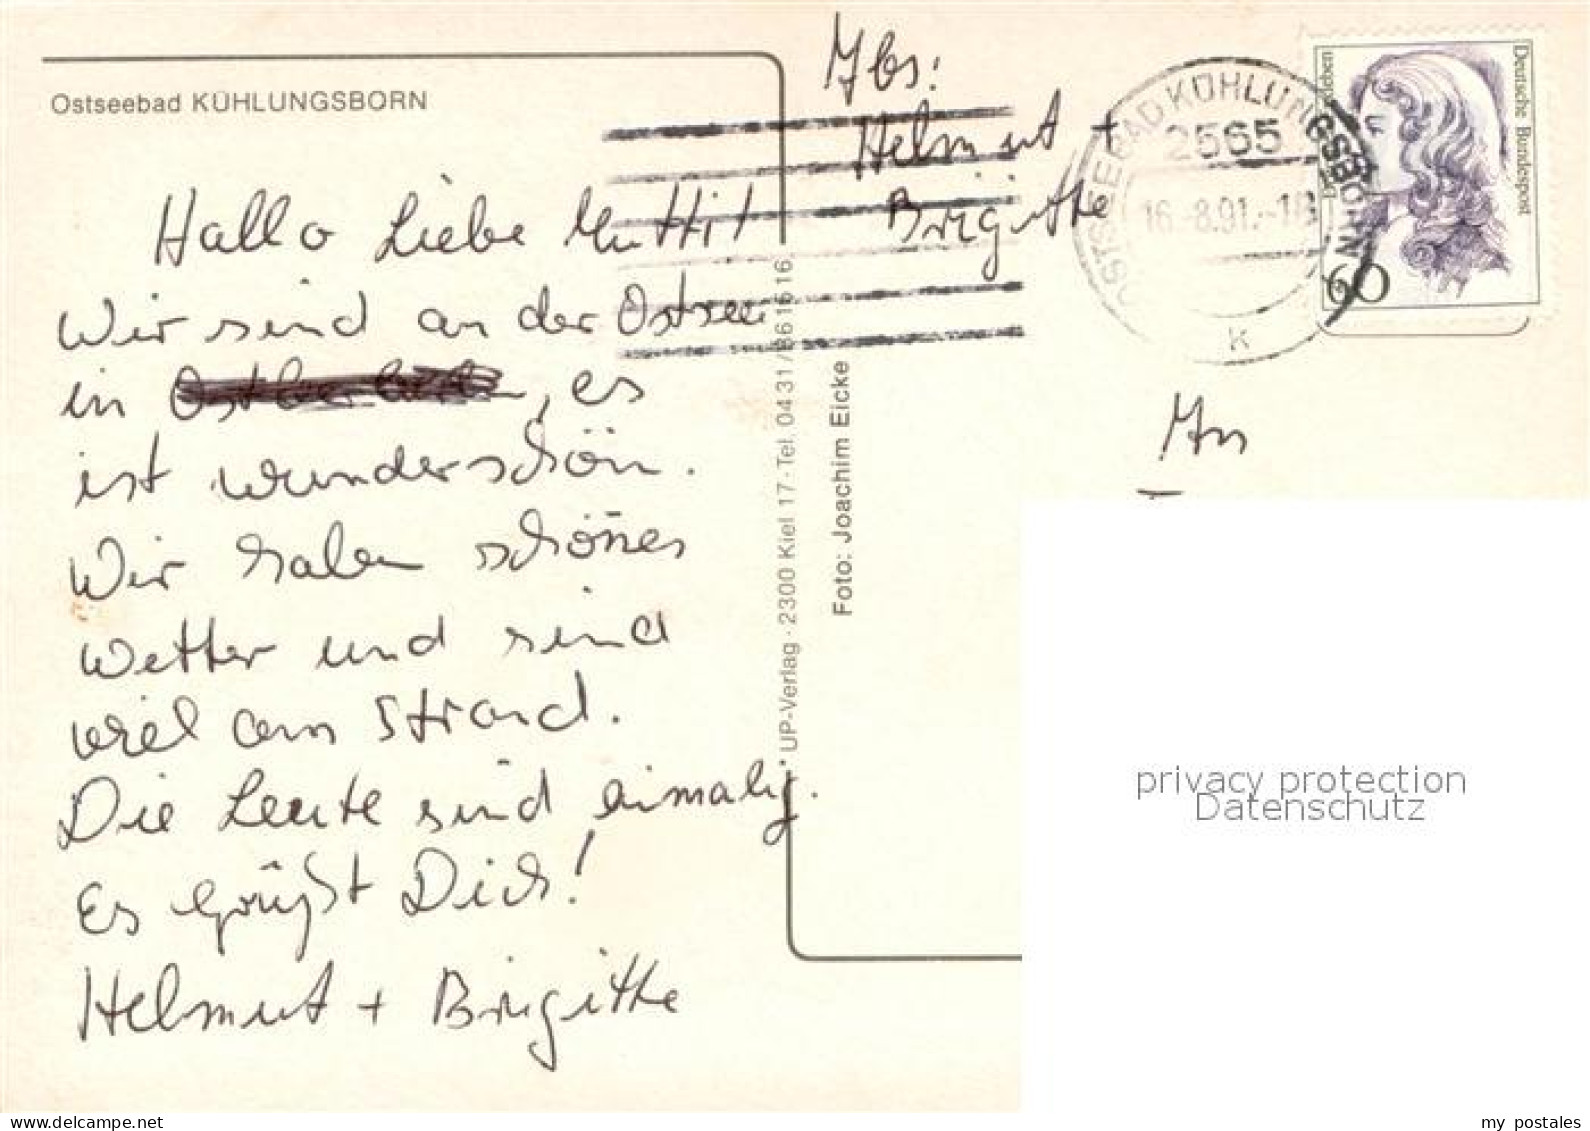 Ostseebad KÜHLUNGSBORN
Abs:
Helmut +
Brigitte
OSTSEEBAD KÜHLUNGSBORN
2565
16.-8.91.-18
k
Deutsche Bundespost
60
Hallo Liebe Mutti!
Wir sind an der Ostsee
in , es
ist wunderschön.
Wir haben schönes
Wetter und sind
viel am Strand.
Die Leute sind einmalig.
Es grüßt Dich!
Helmut + Brigitte
UP-Verlag · 2300 Kiel 17 · Tel. 04 31 / 86 16 16
Foto: Joachim Eicke
An
privacy protection
Datenschutz
my_postales